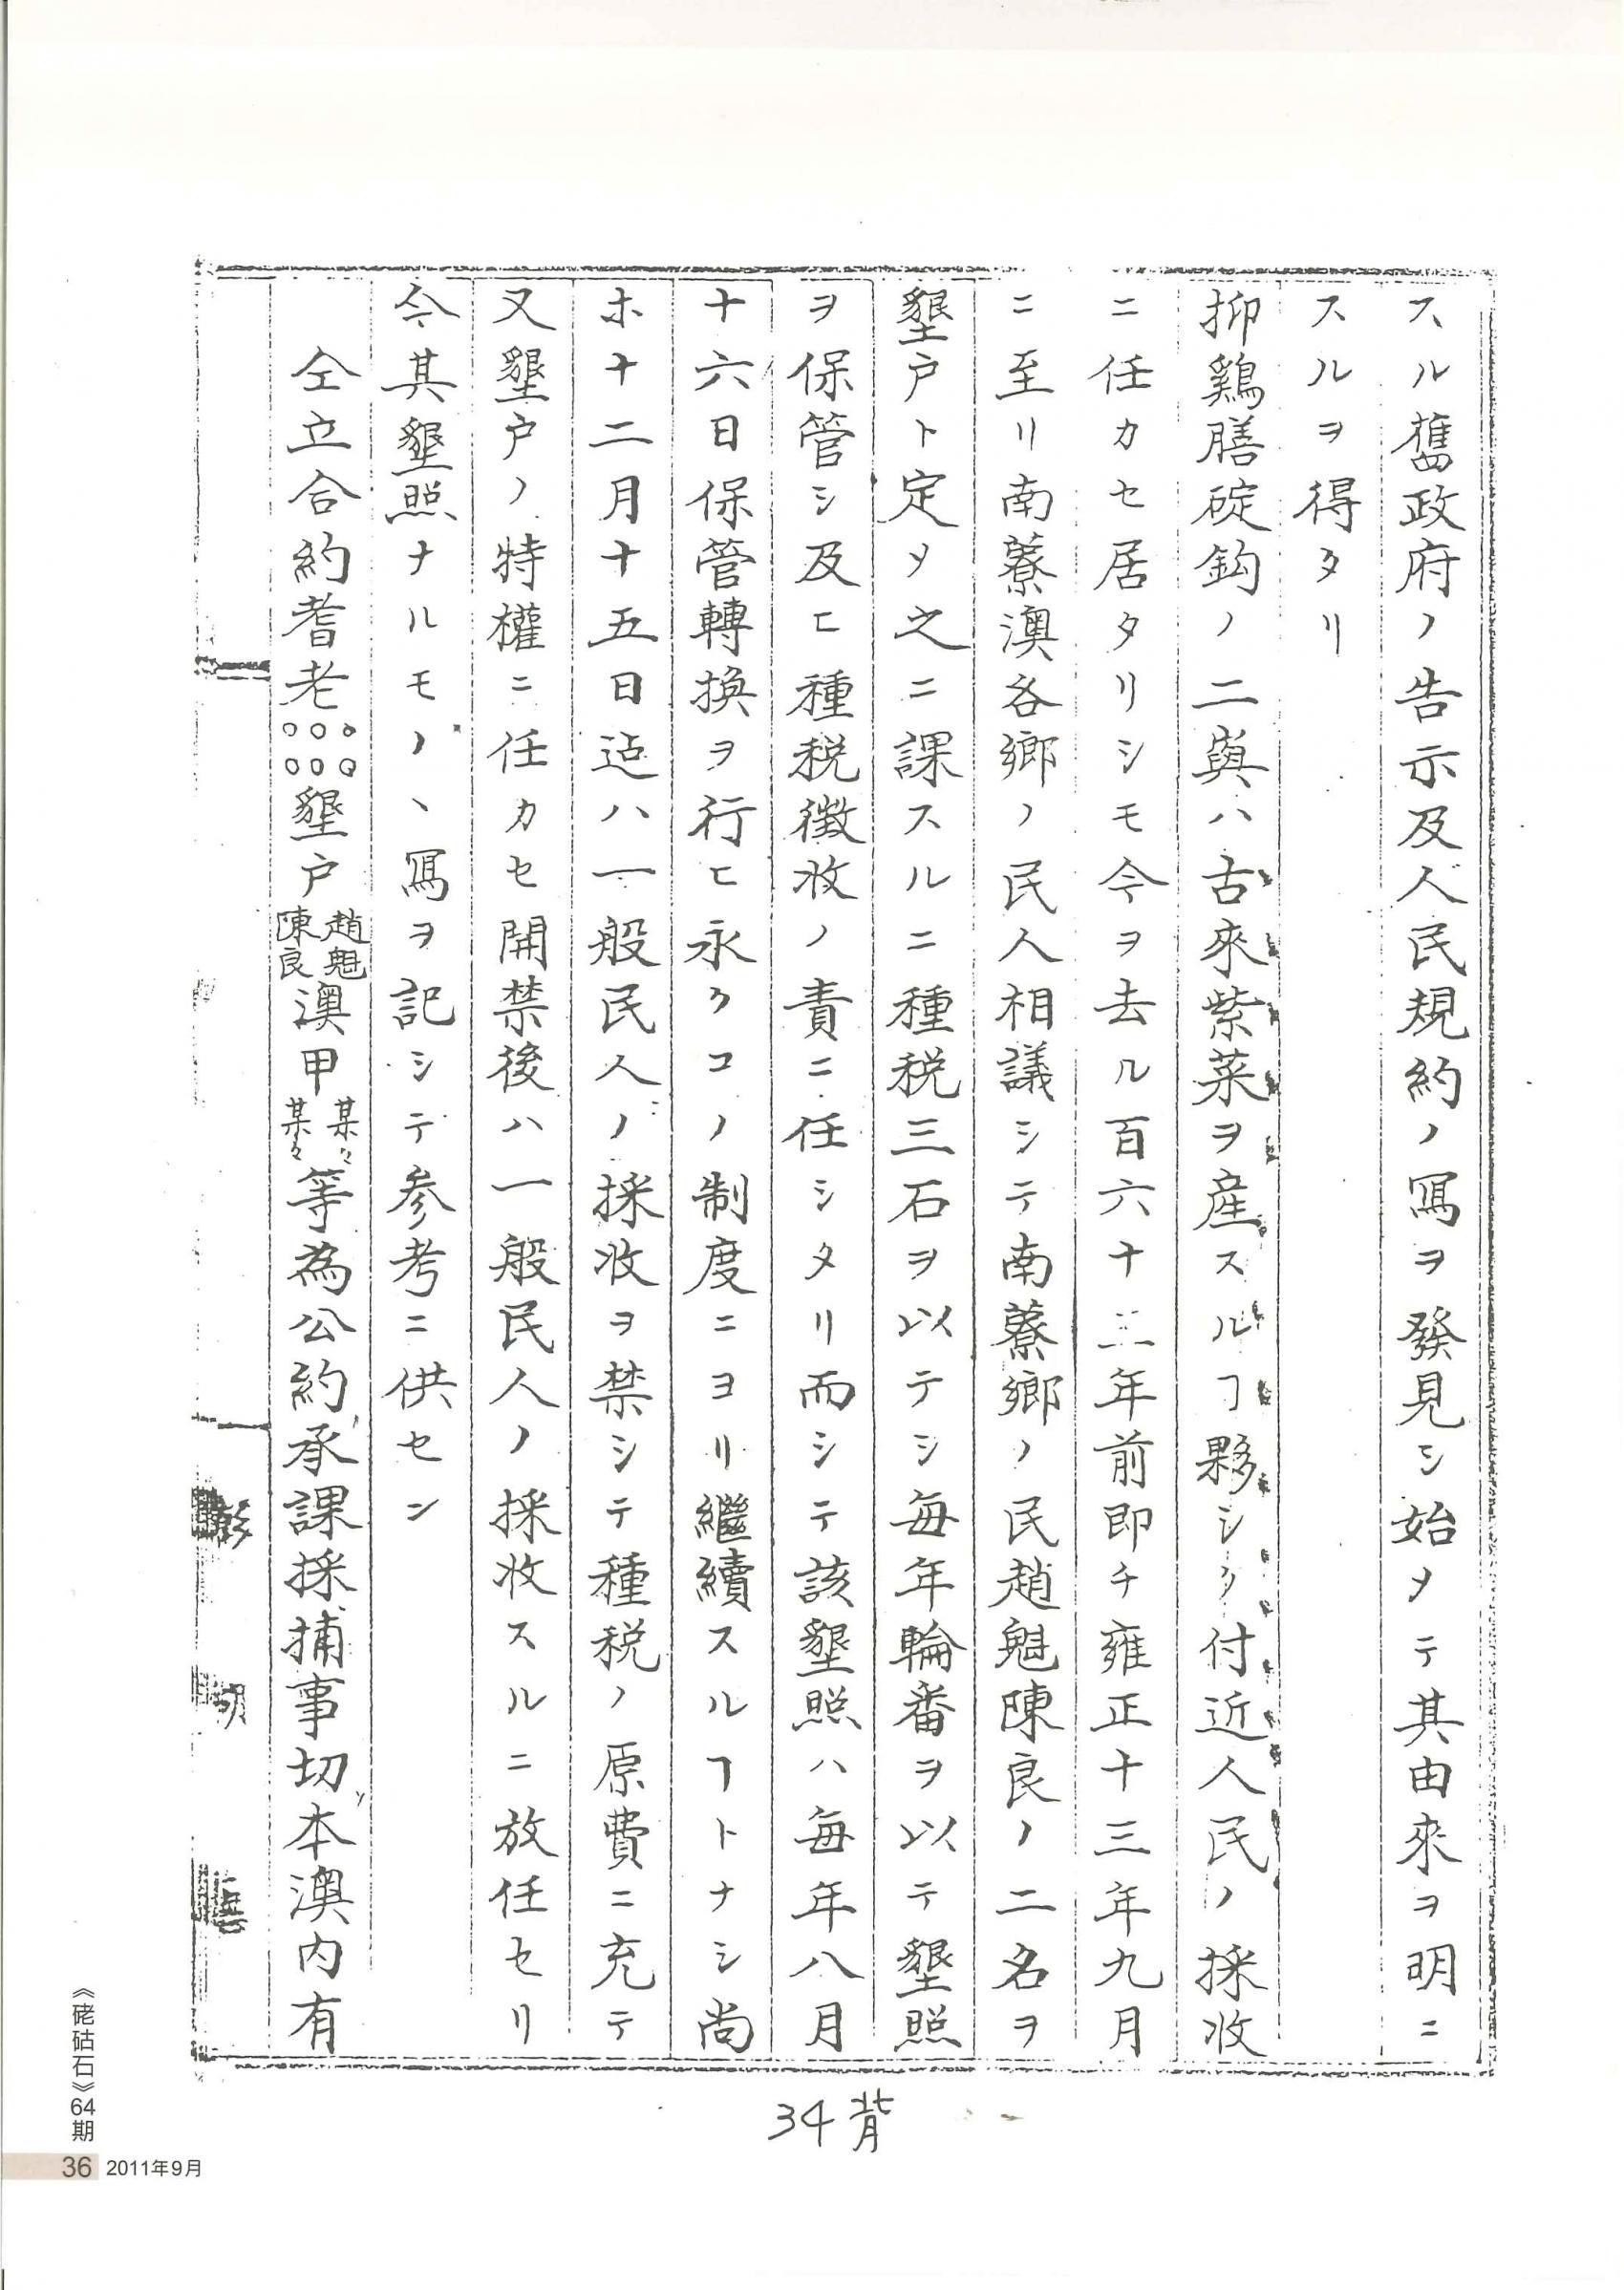 スル舊政府ノ告示及人民規約ノ寫ヲ發見シ始メテ其由來ヲ明ニ
スルヲ得タリ
抑鷄膳碇鈎ノ二嶼ハ古來紫菜ヲ産スルヿ夥シク付近人民ノ採收
ニ任カセ居タリシモ今ヲ去ル百六十二年前即チ雍正十三年九月
ニ至リ南藔澳各鄉ノ民人相議シテ南藔鄉ノ民趙魁陳良ノ二名ヲ
墾户ト定メ之ニ課スルニ種税三石ヲ以テシ毎年輪番ヲ以テ墾照
ヲ保管シ及ヒ種税徴收ノ責ニ任シタリ而シテ該墾照ハ毎年八月
十六日保管轉換ヲ行ヒ永クコノ制度ニヨリ繼續スルヿトナシ尚
ホ十二月十五日迠ハ一般民人ノ採收ヲ禁シテ種税ノ原費ニ充テ
又墾户ノ特權ニ任カセ開禁後ハ一般民人ノ採收スルニ放任セリ
今其墾照ナルモノヽ寫ヲ記シテ参考ニ供セン
仝立合約耆老○○○○○○墾户趙魁陳良澳甲某々某々等為公約承課採捕事切本澳内有
彭
湖
34背
《硓𥑮石》64期
36 2011年9月